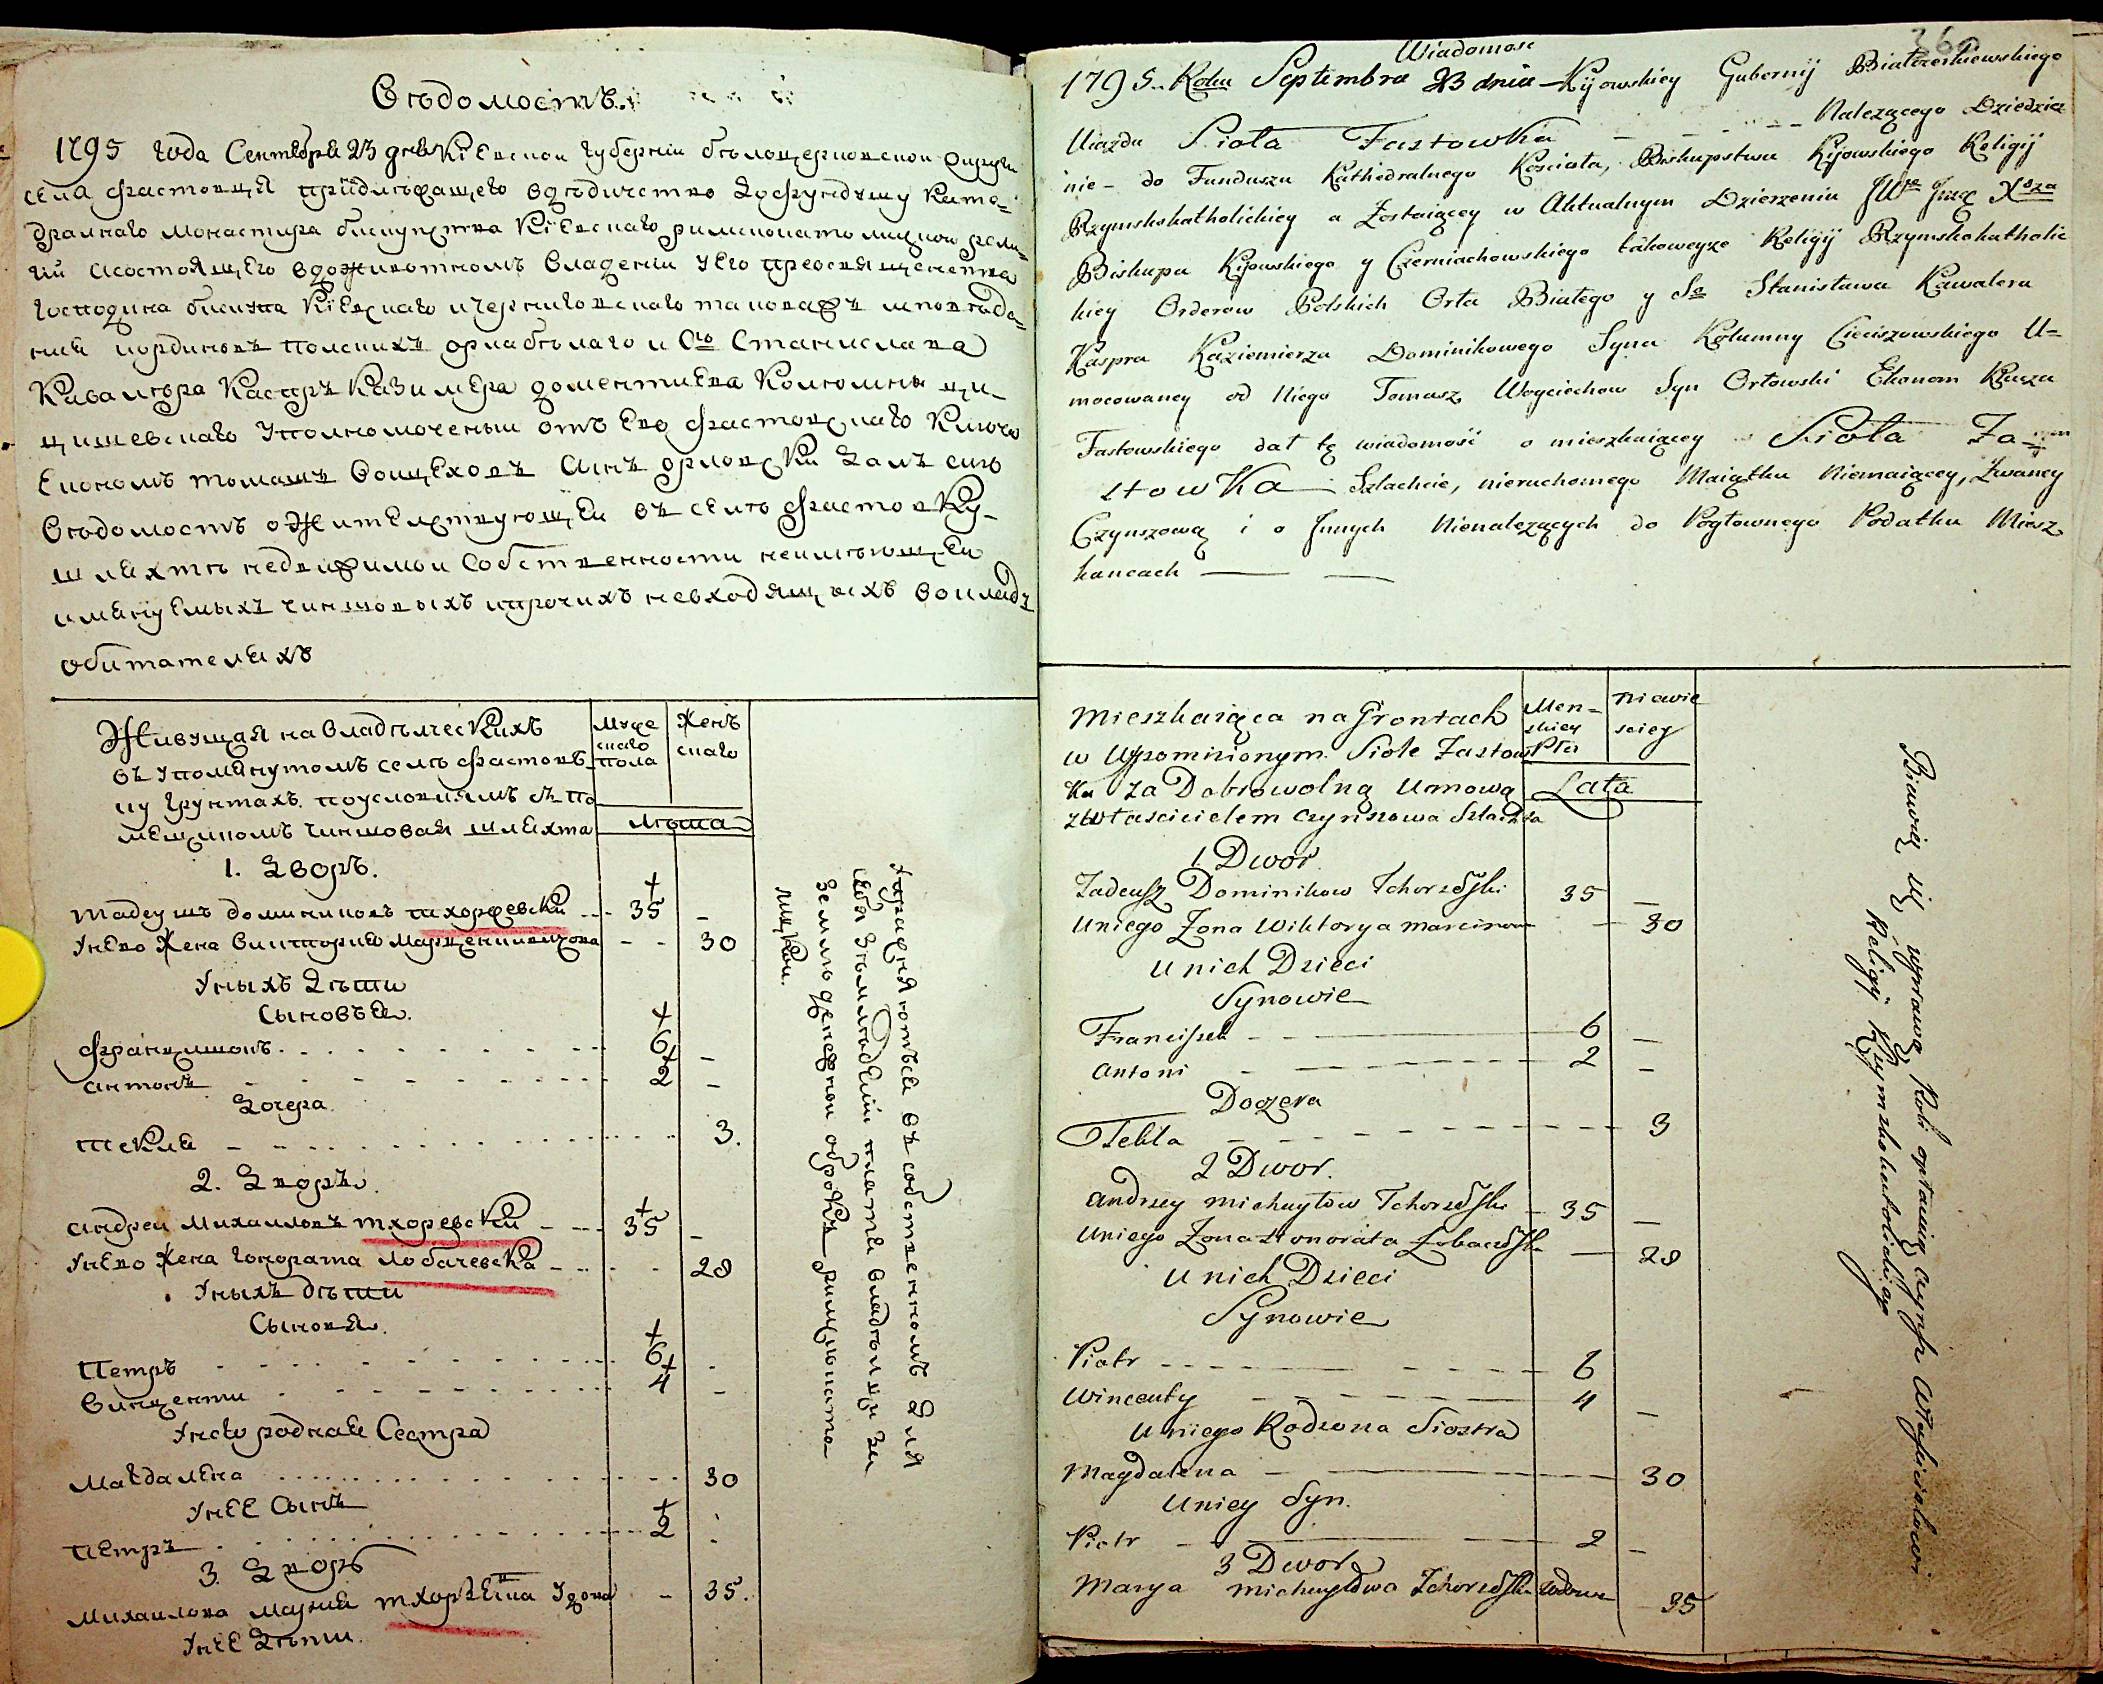 Вѣдомость
1795 года Сентебря 23 дня Кіевской губерніи бѣлоцерковской округи
села фастовця принадлѣжащего
дралнаго монастира бискупства Кіевскаго римскокатолицкой рели-
гіи асостоящего вдоживотномъ владении уего преосвященства
Господина бискупа Кіевскаго ичерниговскаго
кавалѣра польскихъ орла бѣлаго и Сто Станислава
Кавалѣра Каспръ Казимѣра доментиева Колюмны ци-
цишевскаго уполномоченый отъ его фастовскаго Ключа
Економъ томашъ Войцеховъ Синъ орловски далъ сию
Вѣдомость ожителствующей въ селѣ фастовку-
шляхтѣ недвижимой собственности неимѣющей
имянуемыхъ чиншовыхъ ипрочихъ невходящихъ воиладъ
обитателяхъ
Живущая на владѣлческихъ
въ упомянутомъ селѣ фастовъ-
ку грунтахъ поусловиямъ съ по
мещикомъ чиншовая шляхта
Муже
скаго
пола
Женъ
скаго
лѣта
1. Дворъ.
тадеушъ доминиковъ тхоржевски 35 –
унево жена Виктория Марцениковичова 30
уныхъ дѣти
Сыновья.
францишокъ. 6 –
антонъ 2 –
дочера
текля 3.
2. дворъ.
андрей михаиловъ тхоревский 35 –
унево жена гонората лобачевска 28
уныхъ дѣти
Сыновя.
Петръ 6
Винценти 4 –
унево родная Сестра
магдалена 30
унее Сынъ
петръ 2
3. дворъ
михаилова марья тхорѣвска удова – 35.
унее дѣти.
упражняютъся въ собственномъ для
себя земледелии платя владѣлцу за
землю денежной оброкъ римскокато
лицкой.
360
Wiadomosc
1795. Roku Septembra 23 dnia Kijowskiey Gubernij Białocerkiewskiego
Uiazdu Sioła Fastowka Nalezącego Dziedzicz
nie – do Funduszu Kathedralnego Kościoła, Biskupstwa Kijowskiego Religij
Rzymskokatholickiey a Zostaiącey w Aktualnym Dzierzeniu JWo Jmci Xdza
Biskupa Kijowskiego y Czerniachowskiego takoweyże Religij Rzymskokatholic
kiey Orderow Polskich Orła Białego y So Stanisława Kawalera
Kaspra Kaziemierza Dominikowego Syna Kolumny Cieciszowskiego U=
mocowaney od Niego Tomasz Woyciechow Syn Orłowski Ekonom Klucza
Fastowskiego dał tę wiadomość o mieszkaiącey Sioła Fa=
stowka Szlachcie, nieruchomego Maiątku Niemaiącey, Zwaney
Czynszową i o Jnnych Nienalezących do Pogłownego Podatku Miesz
kancach
Mieszkaiąca na Grontach
w Wspomnionym Siole Fastow
ku za Dobrowolną Umową
z Włascicielem czynszowa Szlachta
Men-
skiey
Płci
niewie
sciey
Lata
1. Dwor.
Tadeusz Dominikow Tchorzewski 35 –
Uniego Zona Wiktorya marcinow 30
Unich Dzieci
Synowie
Franciszek 6 –
antoni 2 –
Doczera
Tekla 3
2 Dwor.
Andrzey michayłow Tchorzewski 35 –
Uniego Zona Honorata Łobaczewska 28
Unich Dzieci
Synowie
Piotr 6
Wincenty 4 –
Uniego Rodzona Siostra
Magdalena 30
Uniey Syn.
Piotr 2 –
3 Dwor
Marya Michayłowa Tchorzewska wdowa 35
Bawią się uprawą Roli opłacaiąc czynsz Włascicielowi
Religij Rzymskokatholickiego